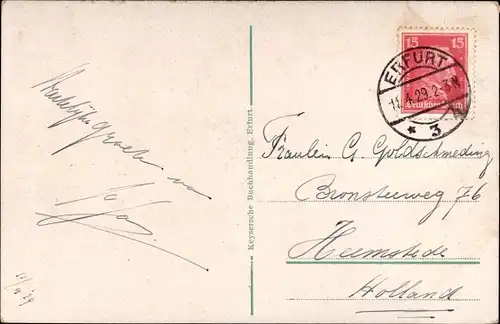 Hartelijke groeten van
11/4 '29
Keysersche Buchhandlung, Erfurt.
15 15
Deutsches Reich
ERFURT
11.4.29.2-3N
* 3
Fräulein G. Goldschmeding
Bronsteeweg 76
Heemstede
Holland